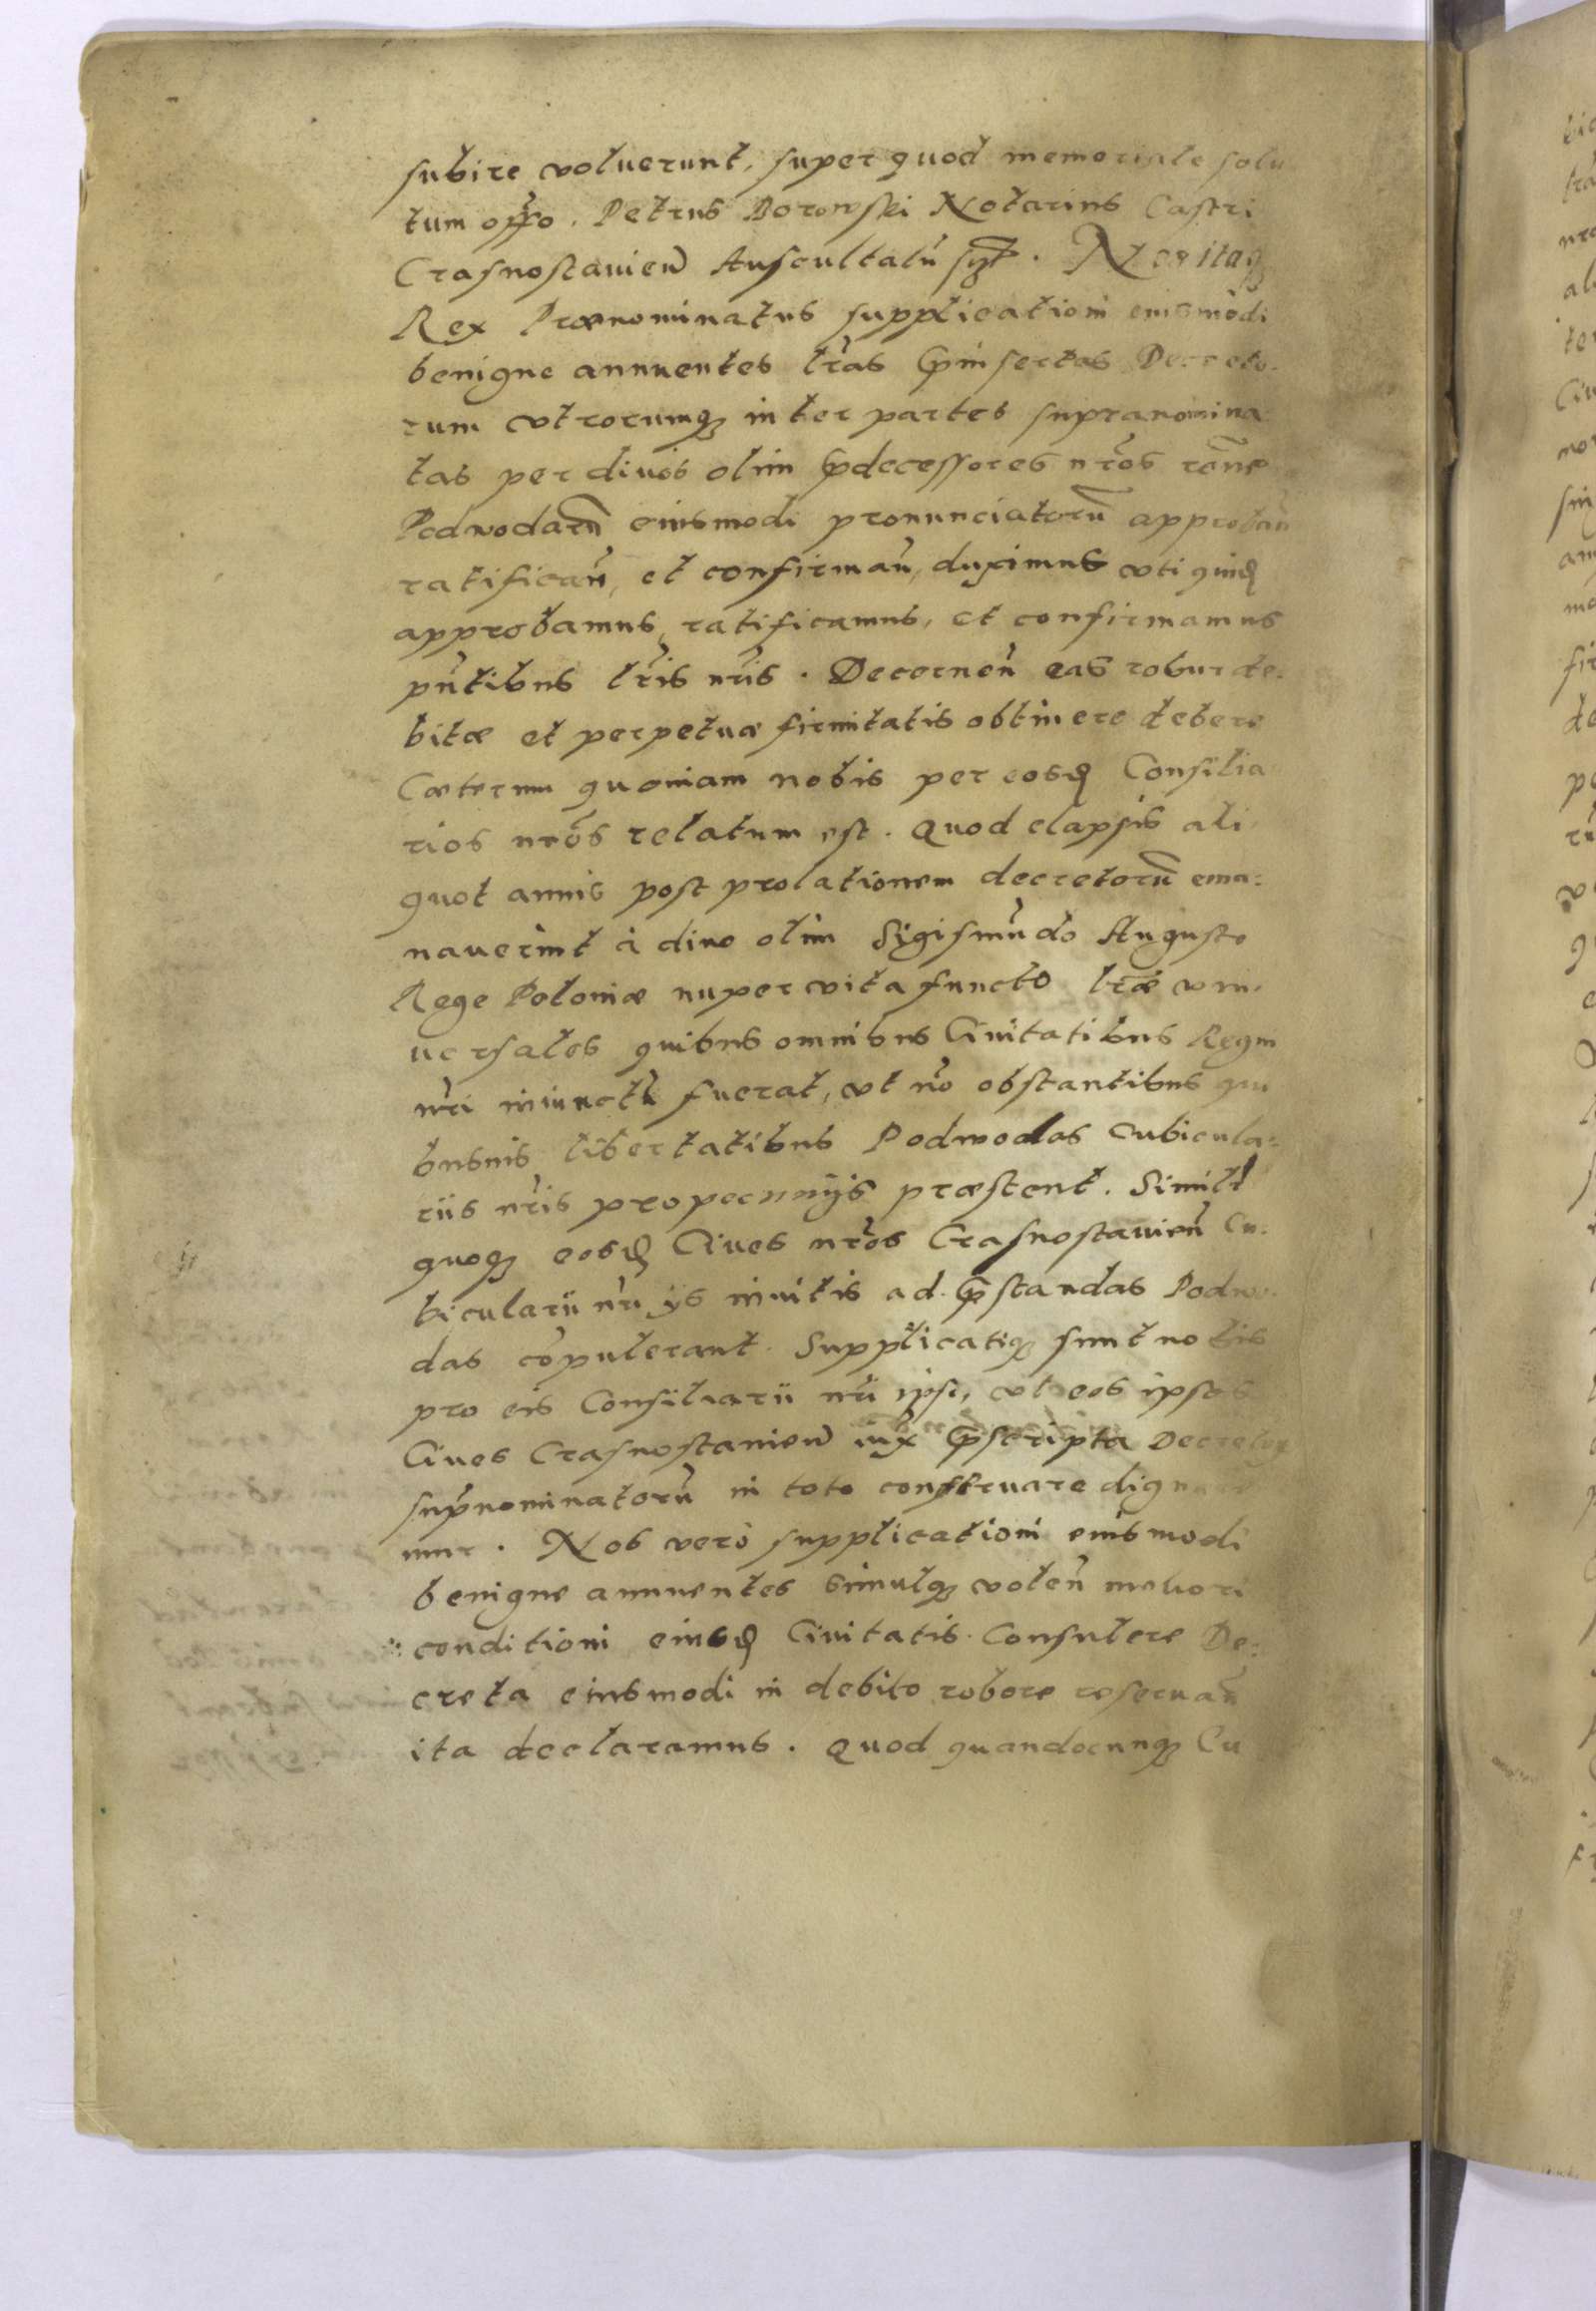 subire voluerunt, super quod memoriale solu
tum oppto. Petrus Borowski Notarius Castri
Crasnostavien̄ Auscultatū sszt. Nos itaq
Rex Prænominatus supplicationi eiusmodi
benigne annuentes lr̄as p̄insertas Decreto-
rum vtrorumq inter partes supranomina
tas per divos olim p̄decessores nr̄os rōne
Podwodarū eiusmodi pronunciatorū approban̄
ratifican̄, et confirman̄, duximus vti quidē
approbamus, ratificamus, et confirmamus
pn̄tibus lr̄is nr̄is. Decernen̄ eas robur de-
bitæ et perpetuæ firmitatis obtinere debere
Cæterum quoniam nobis per eosdē Consilia
rios nr̄os relatum est. Quod elapsis ali
quot annis post prolationem decretorū ema:
naverint à divo olim Sigismūdo Augusto
Rege Poloniæ nuper vita functo lr̄æ vni
versales quibus omnibus Civitatibus Regni
nr̄i iniunctū fuerat, vt nō obstantibus qui
busvis libertatibus Podwodas Cubicula:
riis nr̄is pro pecunijs præstent. Simili
quoq eosdē Cives nr̄os Crasnostavien̄ Cu:
bicularii nr̄i ijs invitis ad p̄standas Podwo
das cōpulerant. Supplicatiq sunt nobis
pro eis Consiliarii nr̄i ipsi, vt eos ipsos
Cives Crasnostavien̄ iuxta p̄scripta Decretor
supnominatorū in toto conservare digna
mur. Nos verò supplicationi eiusmodi
benigne annuentes simulq volen̄ meliori
conditioni eiusdē Civitatis Consulere De:
creta eiusmodi in debito robore reservan̄
ita declaramus. Quod quandocunq Cu